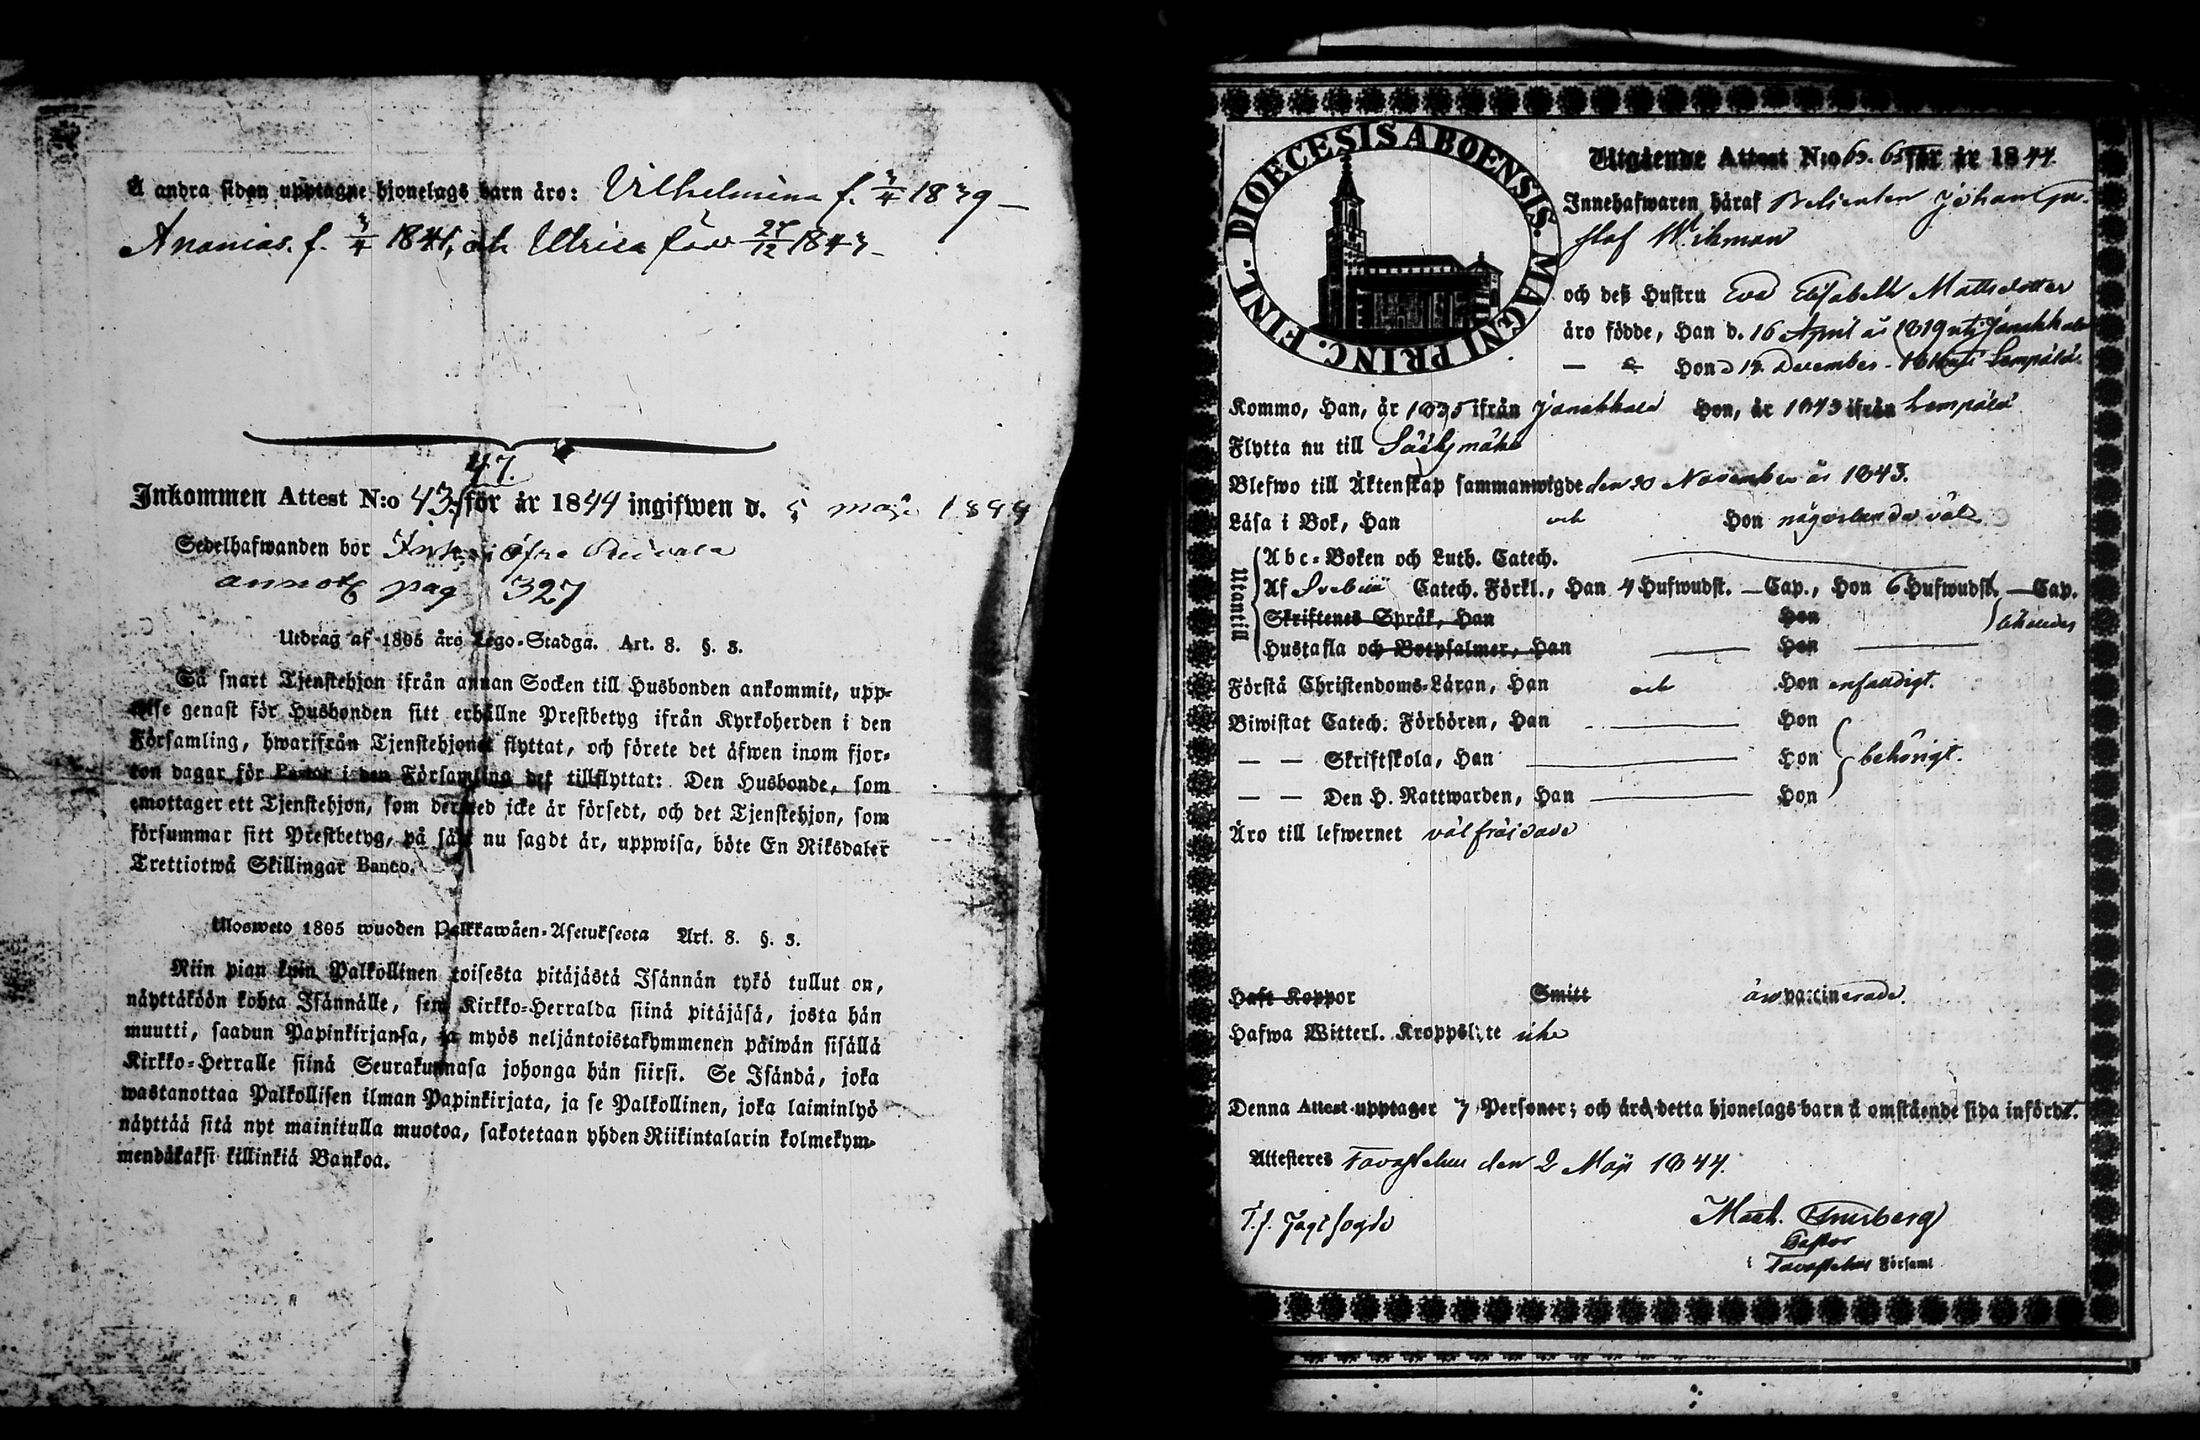 Å andra sidan upptagne hjonelags barn äro: Vilhelmina f. 3/4 1839 —
Ananias. f. 3/4 1841, och Ulrica född 27/12 1843 –
47.
Inkommen Attest N:o 43. för år 1844 ingifwen d. 5 maji 1844
Sedelhafwanden bor öfre
annot pag 327
Utdrag af 1805 års Lego-Stadga. Art. 8. §. 3.
Så snart Tjenstehjon ifrån annan Socken till Husbonden ankommit, upp-
wise genast för Husbonden sitt erhållne Prestbetyg ifrån Kyrkoherden i den
Församling, hwarifrån Tjenstehjonet flyttat, och förete det äfwen inom fjor-
ton dagar för Pastor i den Församling det tillflyttat: Den Husbonde, som
emottager ett Tjenstehjon, som dermed icke är försedt, och det Tjenstehjon, som
försummar sitt Prestbetyg, på sätt nu sagdt är, uppwisa, böte En Riksdaler
Trettiotwå Skillingar Banco.
Ulosweto 1805 wuoden Palkkawäen-Asetuksesta Art. 8. §. 3.
Niin pian kuin Palkollinen toisesta pitäjästä Isännän tykö tullut on,
näyttäköön kohta Isännälle, sen Kirkko-Herralda siinä pitäjäsä, josta hän
muutti, saadun Papinkirjansa, ja myös neljäntoistakymmenen päiwän sisällä
Kirkko-Herralle siinä Seurakunnasa johonga hän siirsi. Se Isändä, joka
wastanottaa Palkollisen ilman Papinkirjata, ja se Palkollinen, joka laiminlyö
näyttää sitä nyt mainitulla muotoa, sakotetaan yhden Riikintalarin kolmekym-
mendäkaksi killinkiä Bankoa.
DIOECESIS ABOENSIS. MAGNI PRINC. FINL.
Utgående Attest N:o 63. 65 för år 1844.
Innehafwaren häraf Betjenten Johan Gu-
staf Wikman
och deß Hustru Eva Elisabeth Mattsdotter
äro födde, Han d. 16 April år 1819 uti Janakkala
— — Hon d December Lempälä
Kommo, Han, år 1835 ifrån Janakkala Hon, år 1843 ifrån Lempälä
Flytta nu till Sääksmäki
Blefwo till Äktenskap sammanwigde den 30 November år 1843.
Läsa i Bok, Han och Hon någorlunda väl
Utantill
Abc-Boken och Luth. Catech.
Af Svebilii Catech. Förkl., Han 4 Hufwudst. — Cap., Hon 6 Hufwudst. — Cap.
Skriftenes Språk, Han Hon
Hustafla och Botpsalmer, Han Hon
Förstå Christendoms-Läran, Han och Hon enfaldigt.
Biwistat Catech. Förhören, Han Hon
— — Skriftskola, Han Hon behörigt.
— — Den H. Nattwarden, Han Hon
Äro till lefwernet välfräjdade
Haft Koppor Smitt äro vaccinerade.
Hafwa Witterl. Kroppslyte icke
Denna Attest upptager 7 Personer; och äro detta hjonelags barn å omstående sida införde.
Attesteres Tavastehus den 2 Maji 1844.
Pastor
i Tavastehus Församl